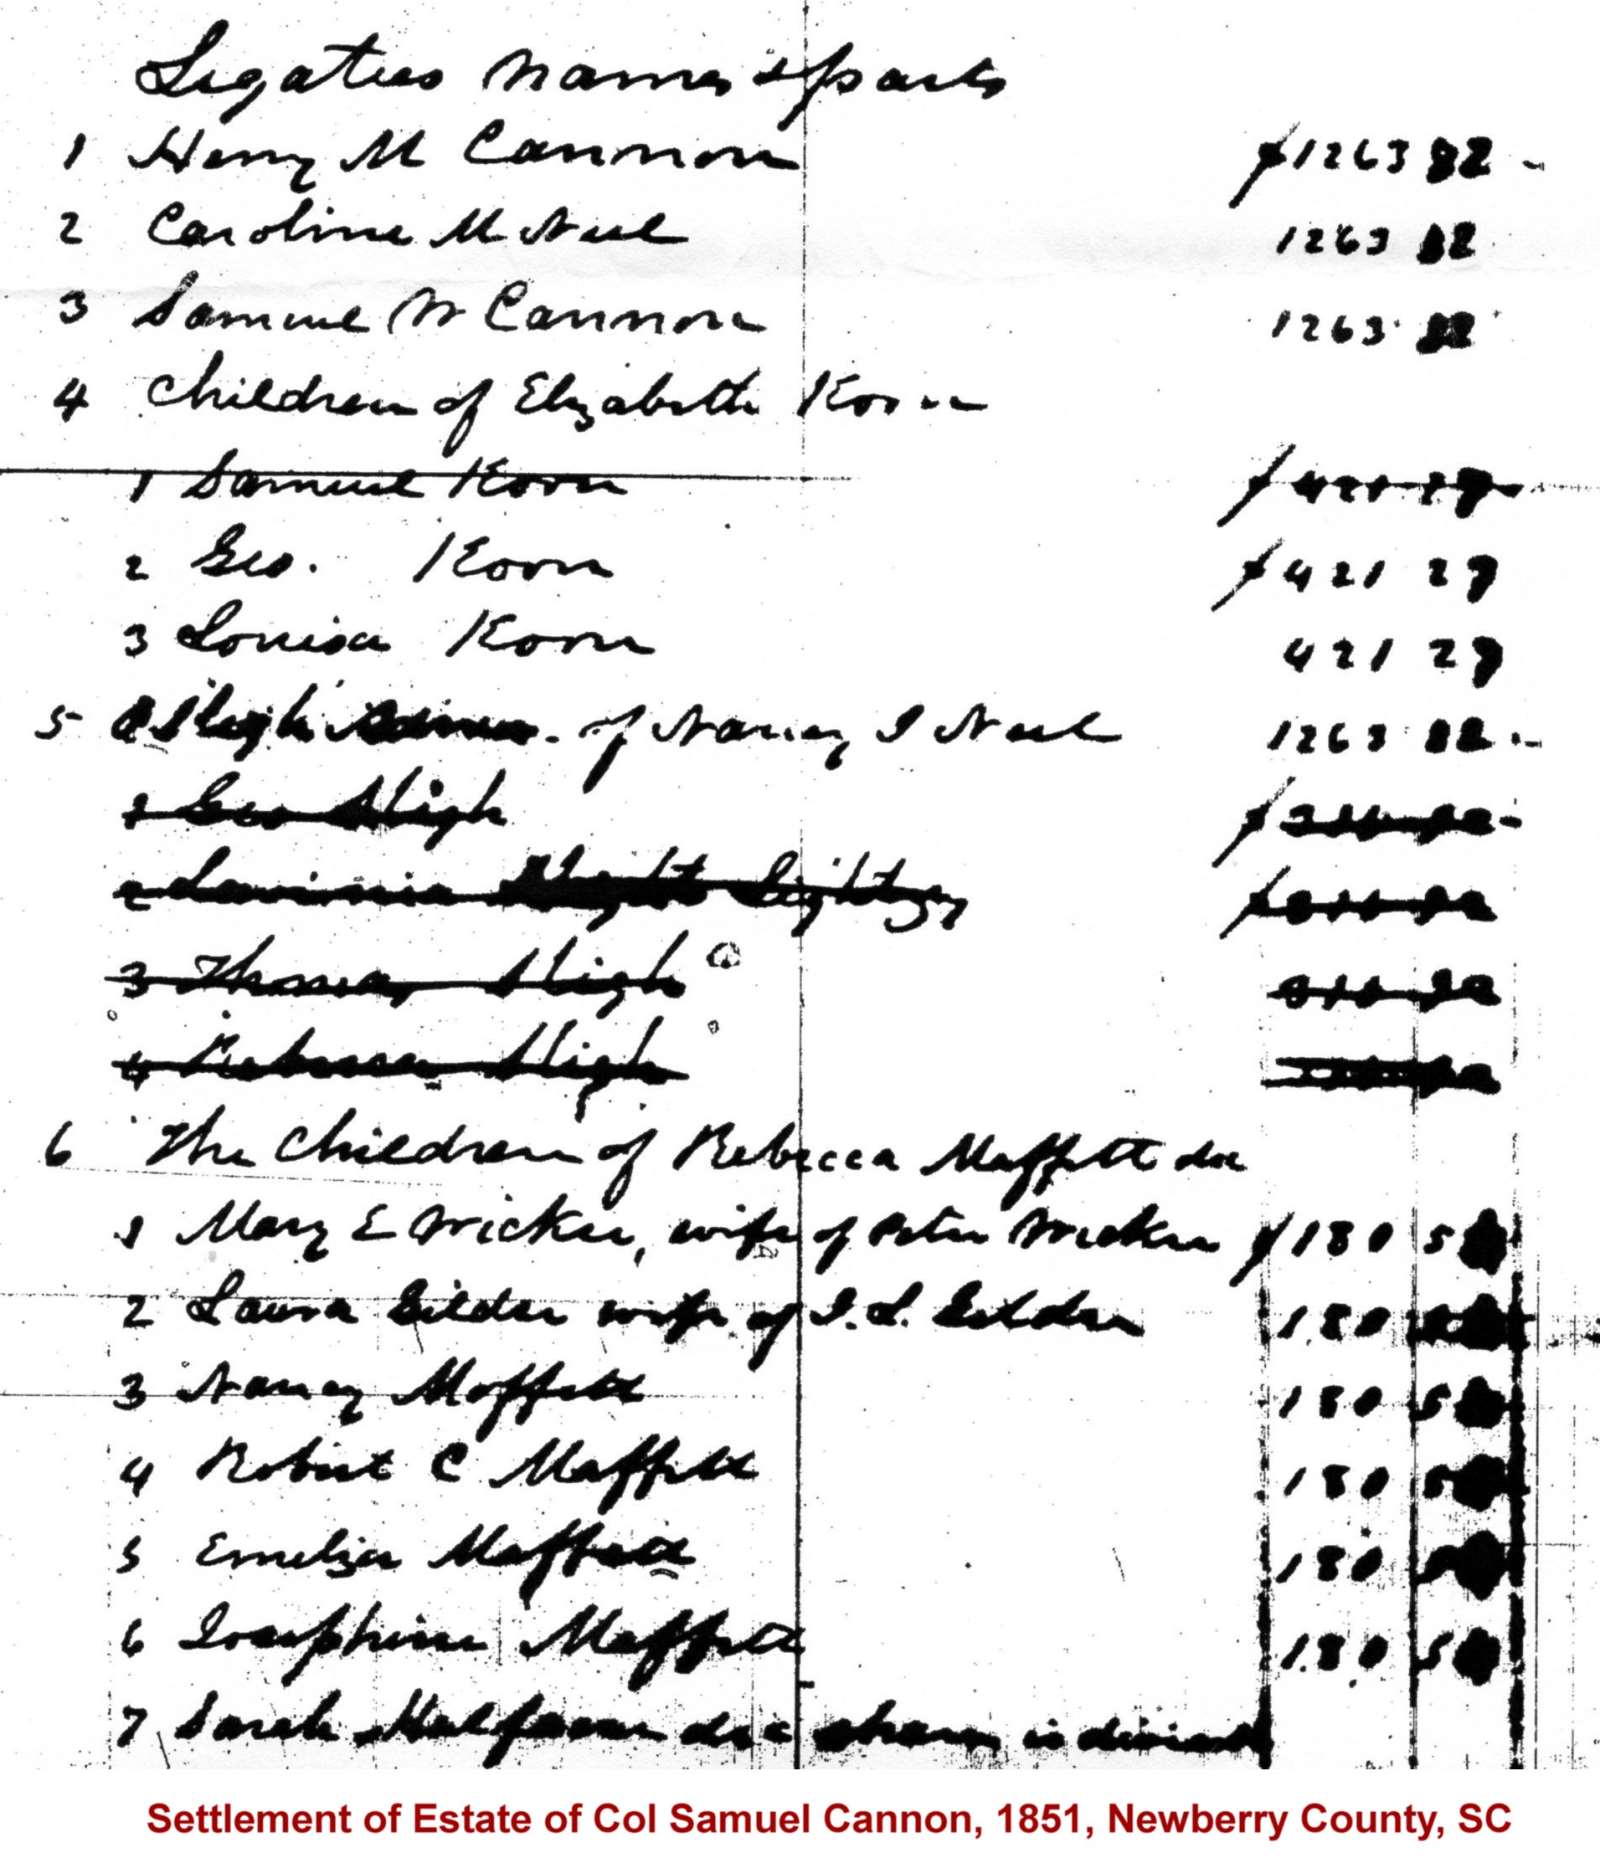 Legatees Names & parts
1 Henry M Cannon $1263 82
2 Caroline M Neel 1263 82
3 Samuel W Cannon 1263 82
4 Children of Elizabeth Koon
1 Samuel Koon $421 27
2 Geo. Koon $421 27
3 Louisa Koon 421 27
5 Sligh of Nancy I Neel 1263 82
1 Geo Sligh
2 Lavinia Sligh Lightsey
3 Thomas Sligh
4 Rebecca Sligh
6 The Children of Rebecca Maffett dec
1 Mary E Wicker, wife of Peter Wicker $180 5
2 Laura Gilder wife of I. L. Gilder 180
3 Nancy Moffett 180 5
4 Robert C Maffett 180 5
5 Emeliza Maffett 180 5
6 Josephine Maffett 180 5
7 Sarah Halfacre dec share is divided
Settlement of Estate of Col Samuel Cannon, 1851, Newberry County, SC